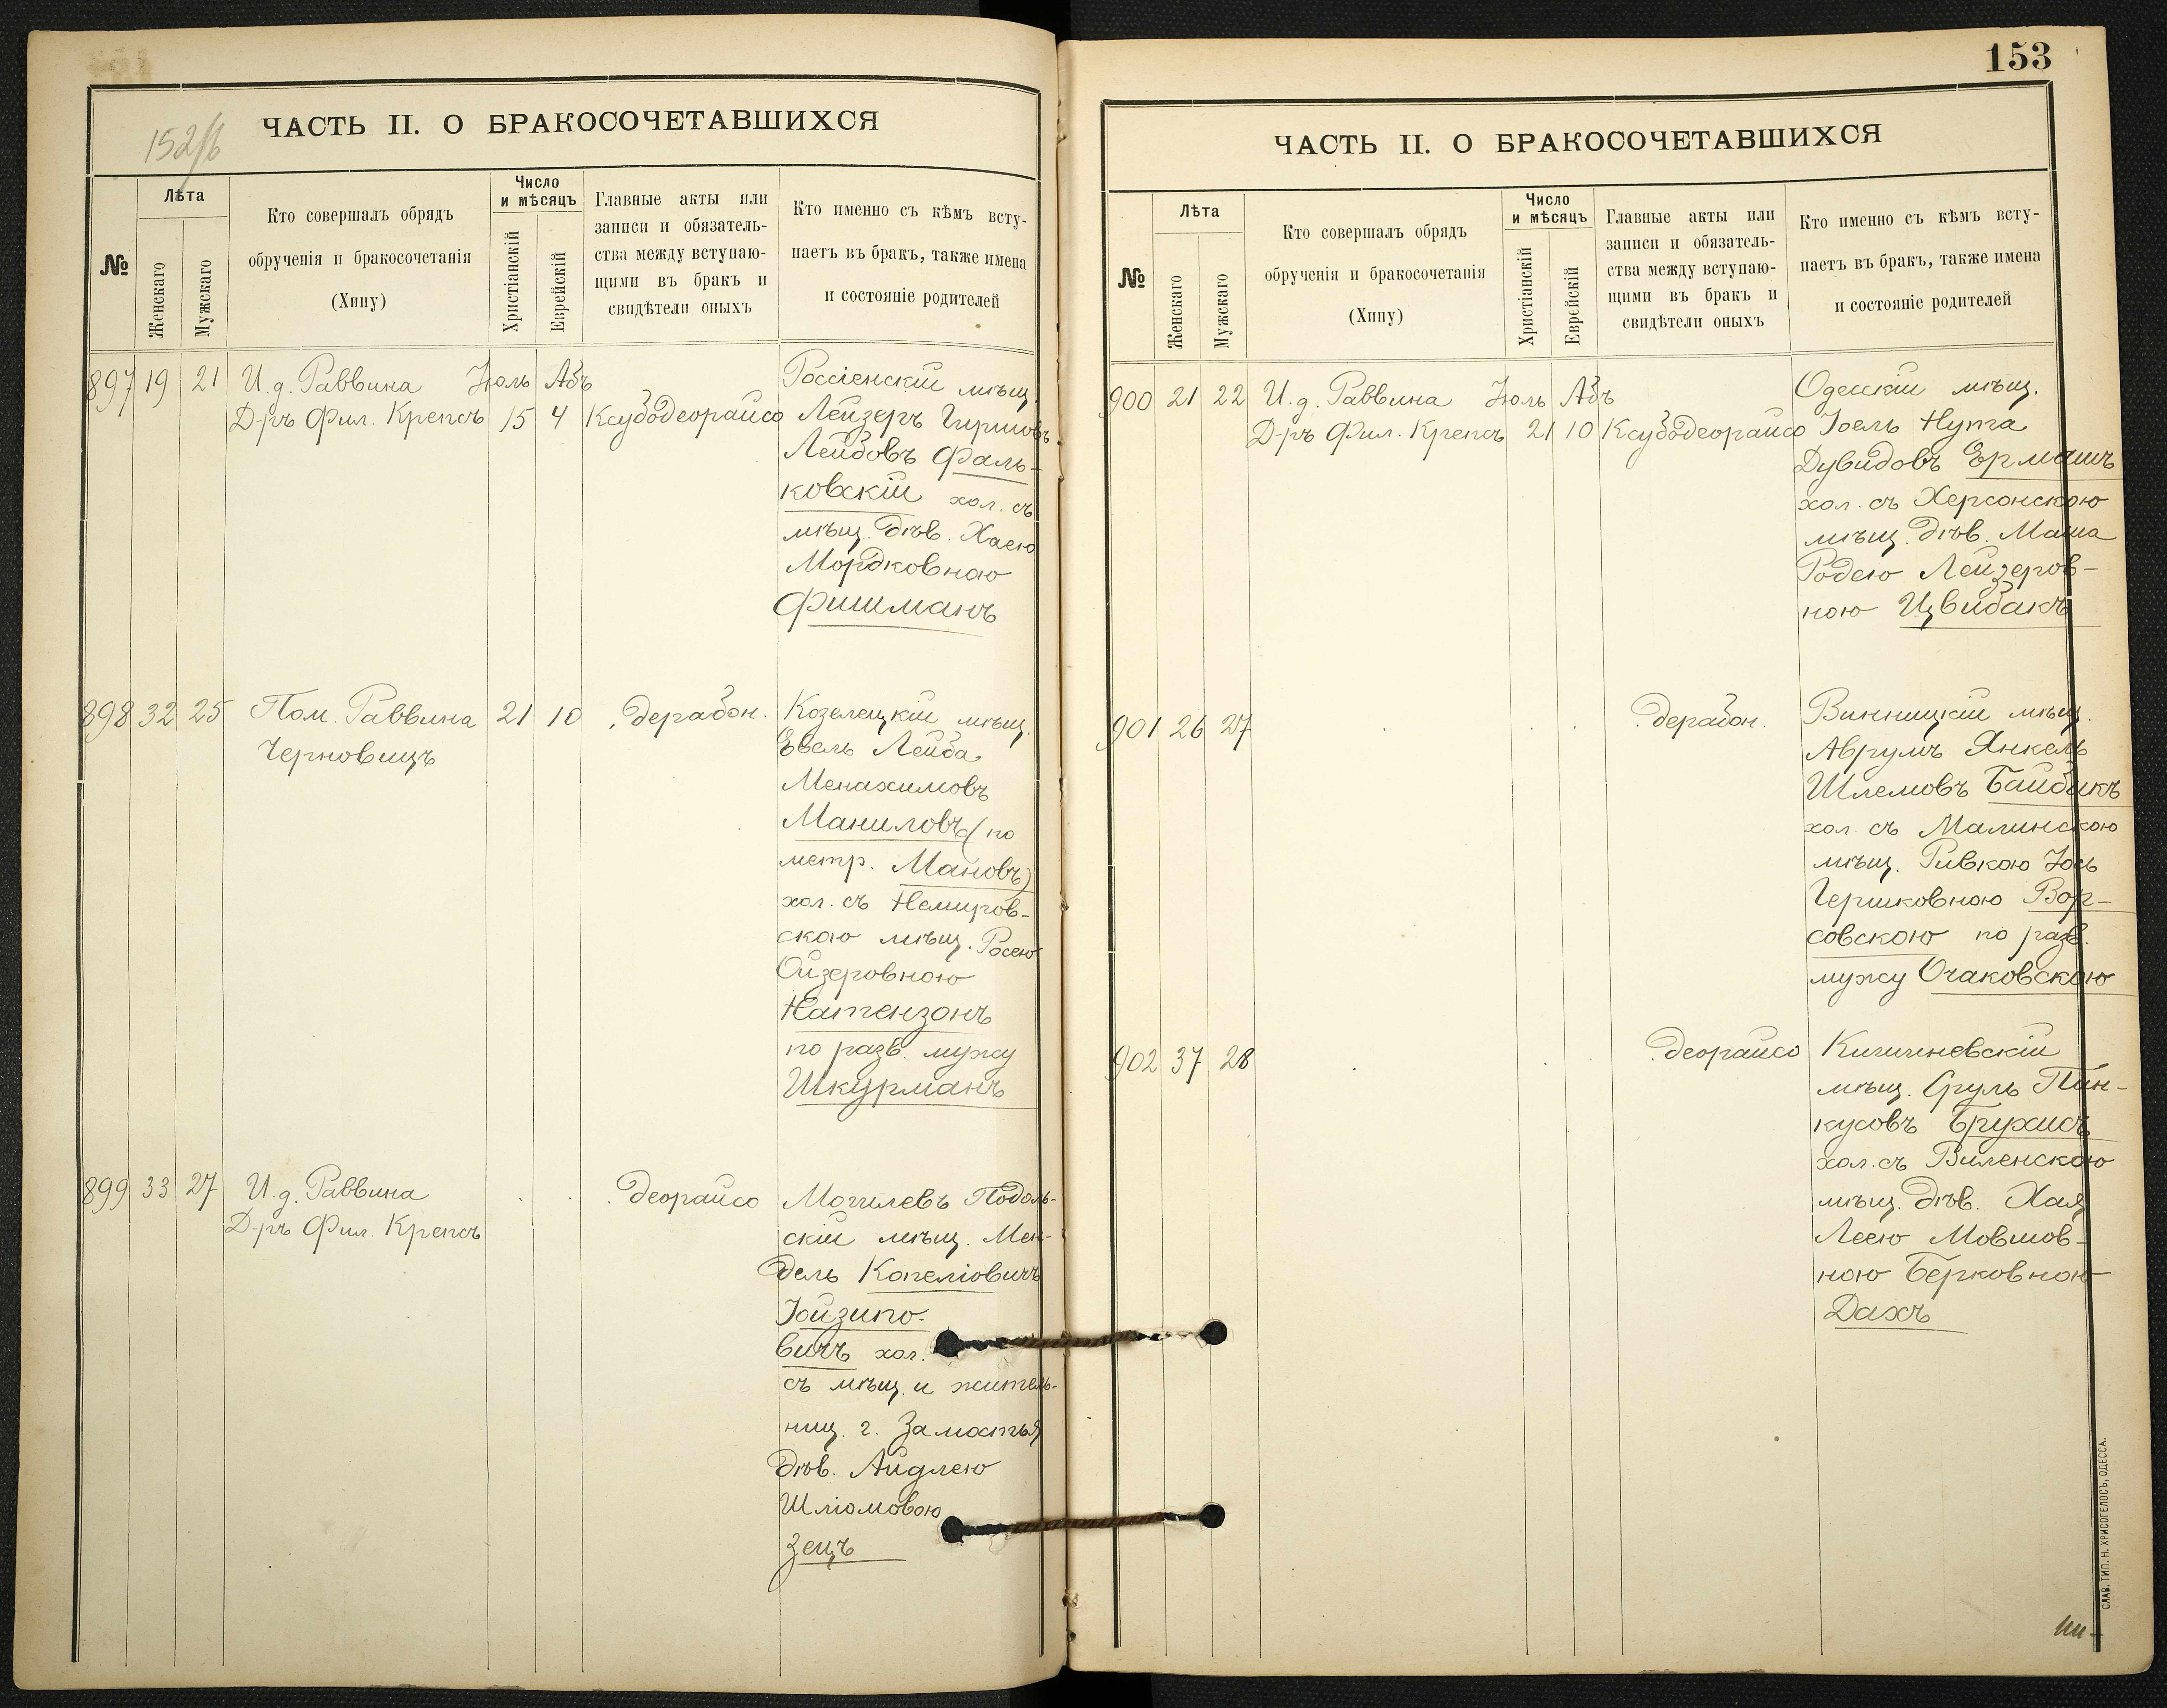 152/б
ЧАСТЬ II. О БРАКОСОЧЕТАВШИХСЯ
№
Лѣта
Женскаго
Мужскаго
Кто совершалъ обрядъ
обрученія и бракосочетанія
(Хипу)
Число
и мѣсяцъ
Христіанскій
Еврейскій
Главные акты или
записи и обязатель-
ства между вступаю-
щими въ бракъ и
свидѣтели оныхъ
Кто именно съ кѣмъ всту-
паетъ въ бракъ, также имена
и состояніе родителей
897 19 21 И. д. Раввина Іюль Абъ
Д-ръ Фил. Крепсъ 15 4 Ксубодеорайсо
Россіенскій мѣщ.
Лейзеръ Гиршовъ
Лейбовъ Фаль-
ковскій хол. съ
мѣщ. дѣв. Хаею
Мордковною
Фишманъ
898 32 25 Пом. Раввина 21 10 дерабон.
Черновицъ
Козелецкій мѣщ.
Эвель Лейба
Менахимовъ
Маниловъ (по
метр. Мановъ)
хол. съ Немиров-
скою мѣщ. Росею
Ойзеровною
Натензонъ
по разв. мужу
Шкурманъ
899 33 27 И. д. Раввина деорайсо
Д-ръ Фил. Крепсъ
Могилевъ Подоль-
скій мѣщ. Мен-
дель Копеліовичъ
Іойзипо-
вичъ хол.
съ мѣщ. и житель-
ниц. г. Замостья
дѣв. Айдлею
Шліомовою
Зецъ
153
ЧАСТЬ II. О БРАКОСОЧЕТАВШИХСЯ
№
Лѣта
Женскаго
Мужскаго
Кто совершалъ обрядъ
обрученія и бракосочетанія
(Хипу)
Число
и мѣсяцъ
Христіанскій
Еврейскій
Главные акты или
записи и обязатель-
ства между вступаю-
щими въ бракъ и
свидѣтели оныхъ
Кто именно съ кѣмъ всту-
паетъ въ бракъ, также имена
и состояніе родителей
900 21 22 И. д. Раввина Іюль Абъ
Д-ръ Фил. Крепсъ 21 10 Ксубодеорайсо
Одесскій мѣщ.
Іоель Нута
Дувидовъ Ермашъ
хол. съ Херсонскою
мѣщ. дѣв. Маша
Родею Лейзеров-
ною Цвибакъ
901 26 27 дерабон.
Винницкій мѣщ.
Аврумъ Янкель
Шлемовъ Байбикъ
хол. съ Малинскою
мѣщ. Ривкою Іось
Гершковною Вор-
совскою по разв.
мужу Очаковскою
902 37 28 деорайсо
Кишиневскій
мѣщ. Сруль Пин-
кусовъ Брухисъ
хол. съ Виленскою
мѣщ. дѣв. Хая
Леею Мовшов-
ною Берковною
Дахъ
СЛАВ. ТИП. Н. ХРИСОГЕЛОСЪ, ОДЕССА.